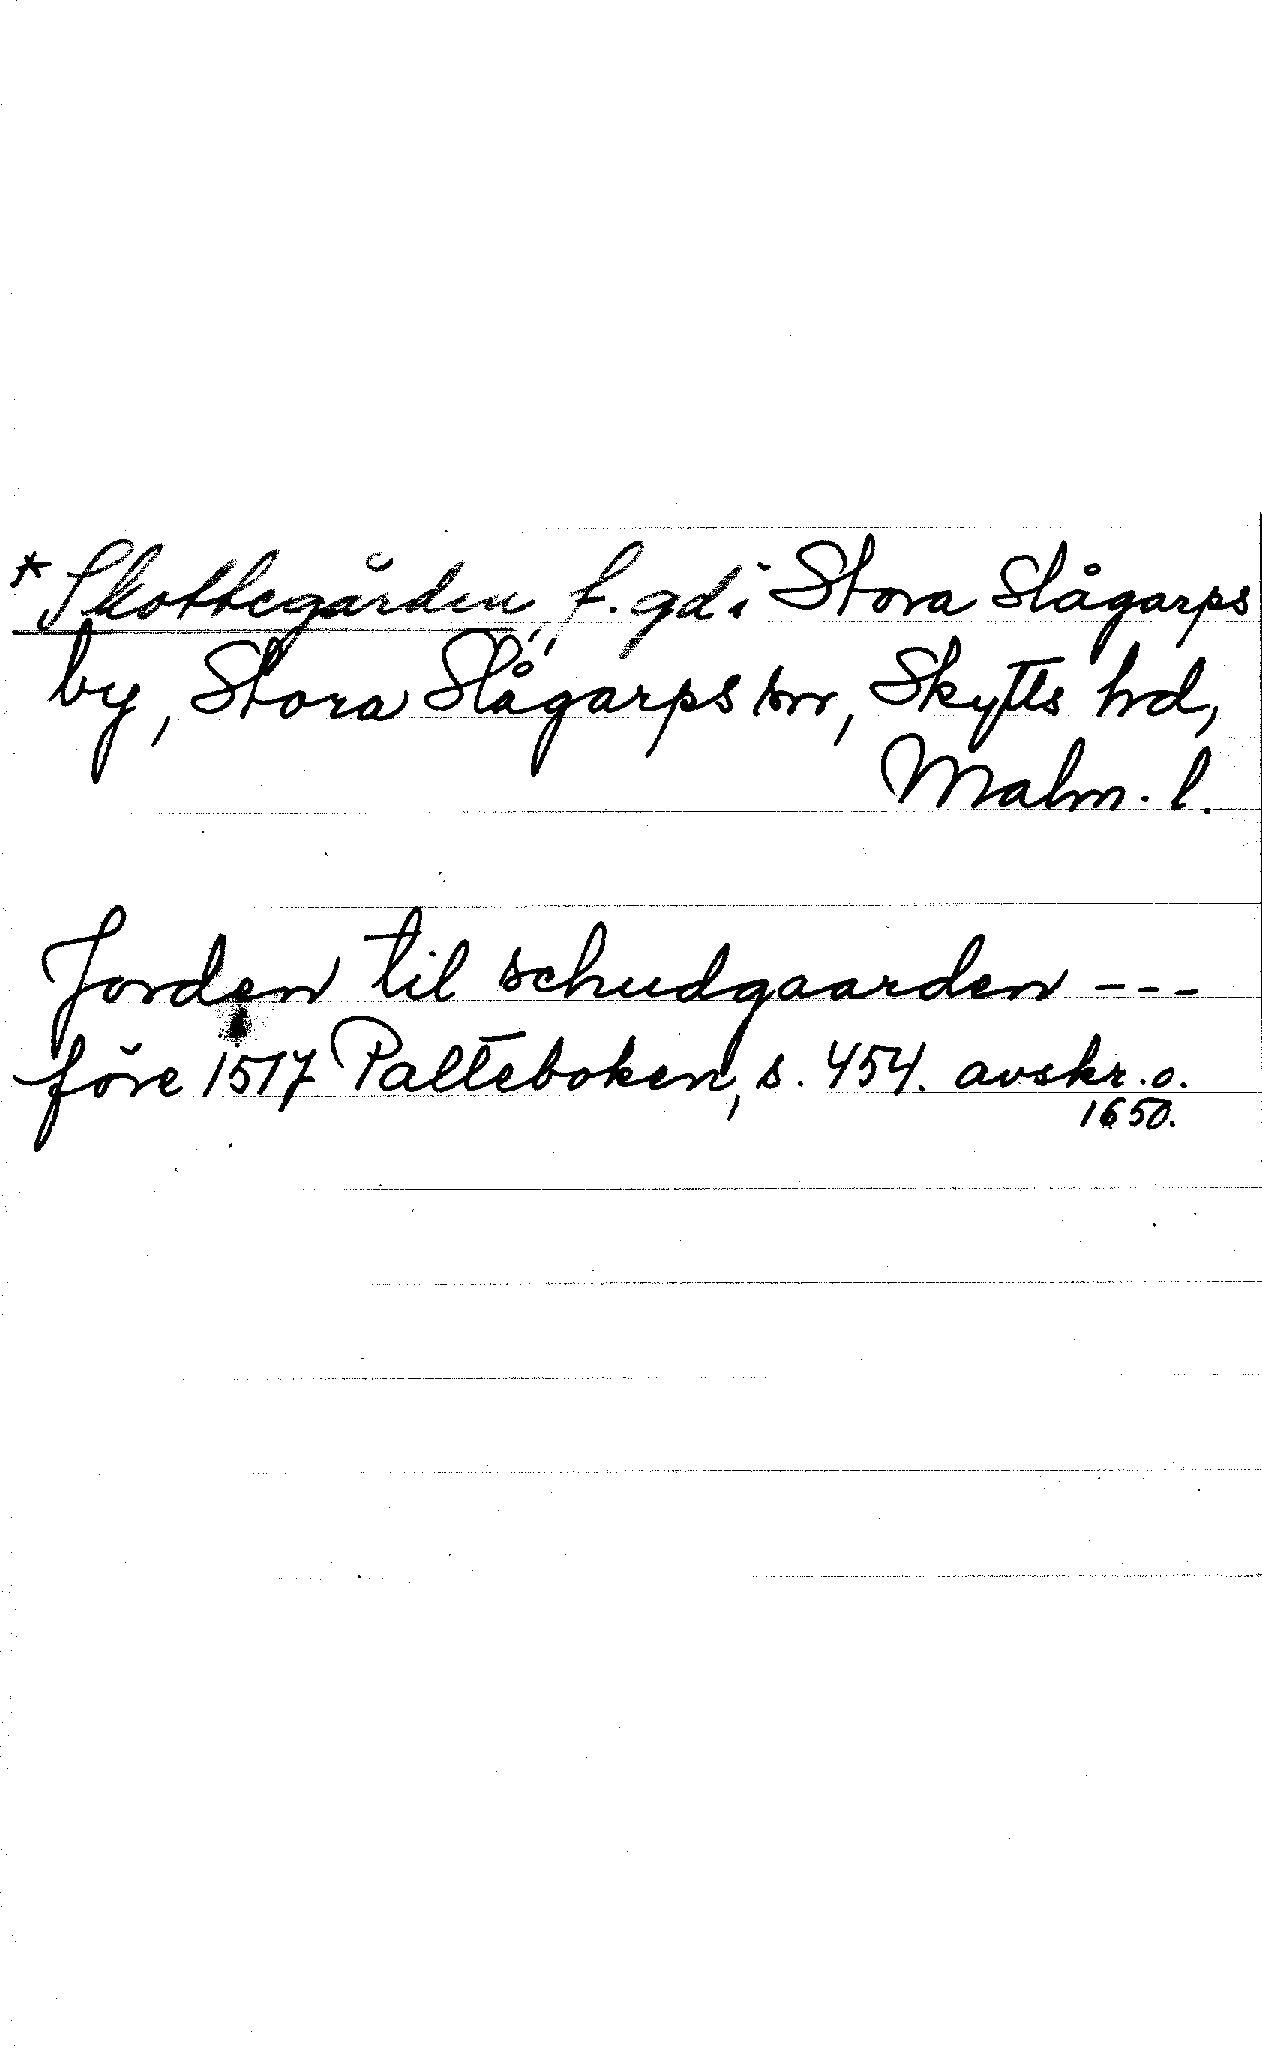 *Skottegården, f. gd i Stora Slågarps
by, Stora Slågarps sn, Skytts hd,
Malm. l.
Jorden til schudgaarden ---
före 1517 Palteboken, s. 454. avskr. o.
1650.